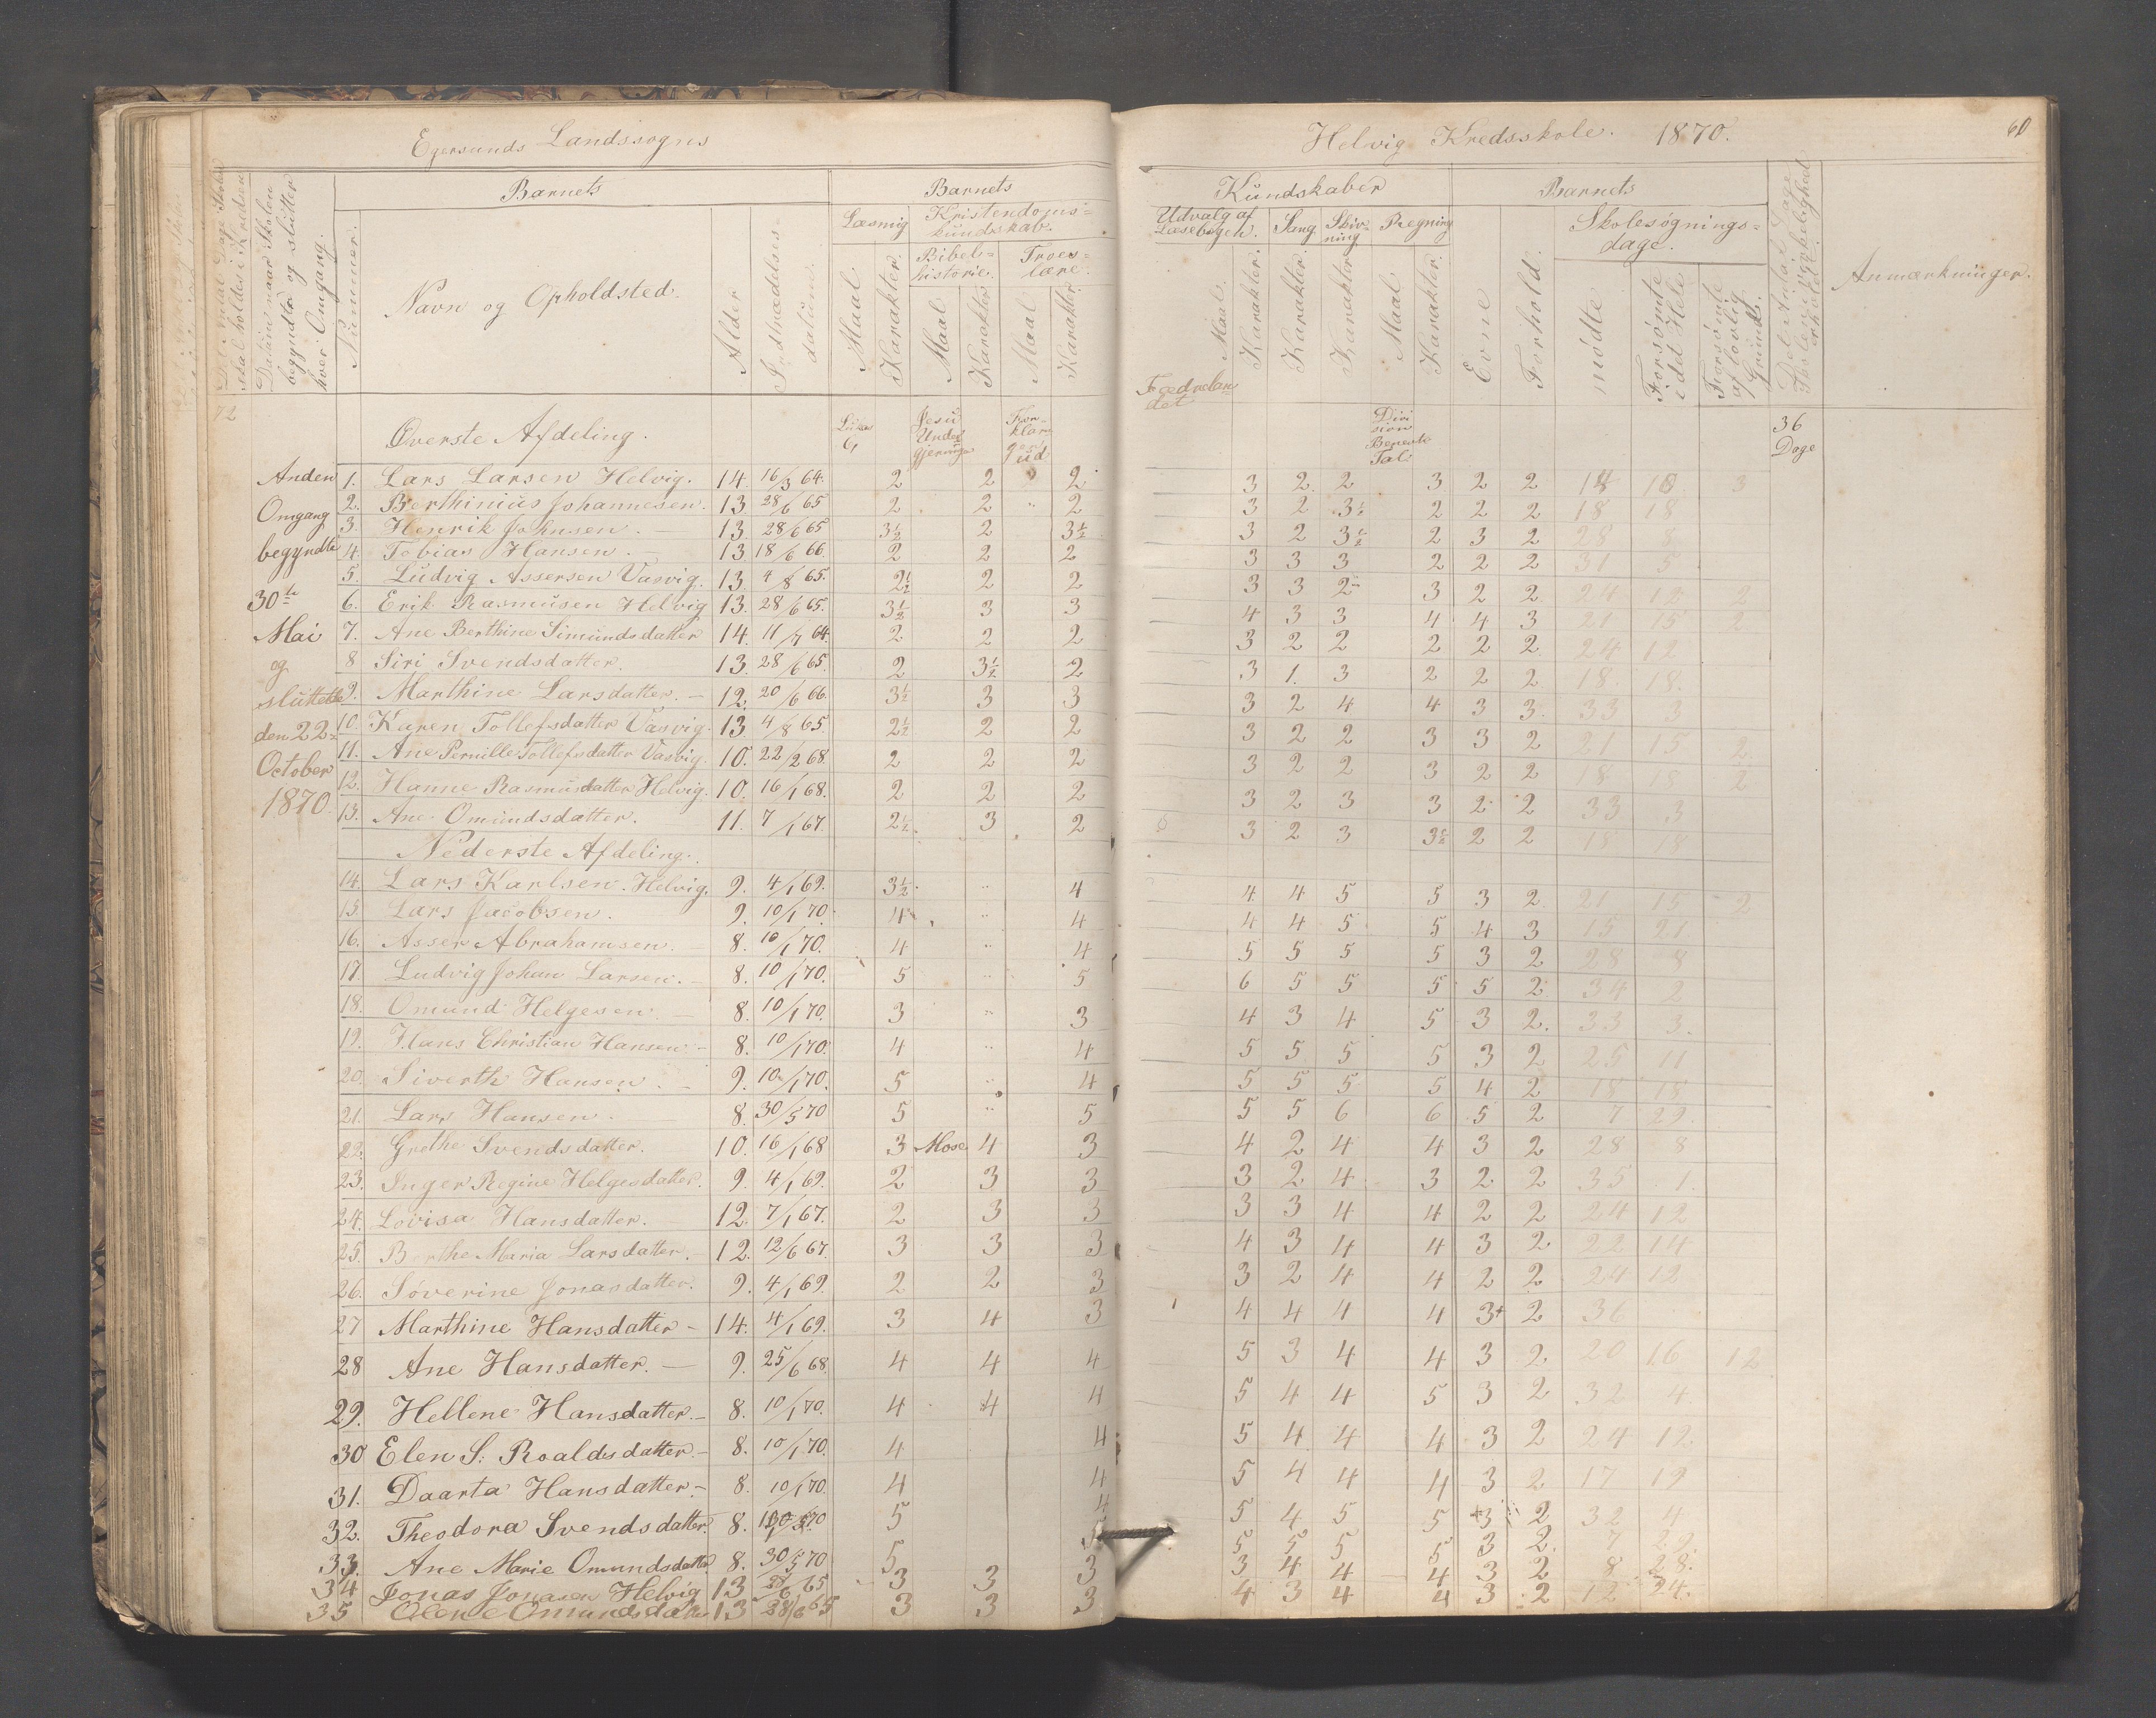 Egersunds Landssogns
Helvig Kredsskole. 1870.
60
Barnets
Barnets
Kundskaber
Barnets
Datum naar Skolen begyndte og sluttede hver Omgang.
Nummer.
Navn og Opholdsted.
Alder
Indtrædelses-datum.
Læsning
Kristendoms-kundskab.
Bibel-historie.
Troes-lære.
Maal
Karakter.
Maal
Karakter
Maal
Karakter.
Udvalg af Læsebogen.
Sang
Skiv-ning
Regning
Maal.
Karakter.
Karakter.
Karakter
Maal
Karakter.
Evne
Forhold.
Skolesøgnings-dage.
mødte
Forsømte i det Hele
Forsømte af lovlig Grund.
Anmærkninger.
72
Øverste Afdeling.
Jesu Under gjerninger
Fædrelandet
Division Benevnte Tal.
36 Dage
Anden Omgang begyndte 30te Mai og sluttede den 22 October 1870.
1. Lars Larsen Helvig. 14. 16/3 64. 2 2 2 3 2 2 3 2 2 3
2. Berthinius Johannesen. 13 28/6 65 2 2 2 3 2 3½ 2 2 2 18 18
3. Henrik Johnsen. 13. 28/6 65 3½ 2 3½ 3 2 3½ 2 3 2 28 8
4. Tobias Hansen. 13 18/6 66. 2 2 2 3 3 3 2 2 2 31 5
5. Ludvig Assersen Vasvig. 13. 4/8 65. 2½ 2 2 3 3 2 3 2 2 24 12 2
6. Erik Rasmusen Helvig 13. 28/6 65. 3½ 3 3 4 3 3 4 4 3 21 15 2
7. Ane Berthine Simundsdatter 14. 11/7 64. 2 2 2 3 2 2 2 2 2 24 12
8 Siri Svendsdatter. 13. 28/6 65. 2 3½ 2 3 1. 3 2 2 2 18. 18.
9. Marthine Larsdatter. – 12. 20/6 66. 3½ 3 3 3 2 4 4 3 3. 33 3
10. Karen Tollefsdatter Vasvig. 13. 4/8 65. 2½ 2 2 3 2 2 3 3 2 21 15 2
11. Ane Pernille Tollefsdatter Vasvig. 10. 22/2 68. 2 2 2 3 2 2 3 2 2 18 18 2
12. Hanne Rasmusdatter Helvig. 10. 16/1 68. 2 2 2 3 2 3 3 2 2 33 3
13. Ane Omundsdatter. 11. 7/1 67. 2½ 3 2 3 2 3 3½ 2 2 18 18
Nederste Afdeling.
14. Lars Karlsen. Helvig. 9. 4/1 69. 3½ " 4 4 4 5 5 3 2 21 15 2
15. Lars Jacobsen. 9. 10/1 70. 4 " 4 4 4 5 5 4 3 15 21
16. Asser Abrahamsen. – 8. 10/1 70. 4 " 4 5 5 5 5 3 2 28 8
17. Ludvig Johan Larsen. – 8. 10/1 70. 5 " 5 6 5 5 5 5 2 34 2
18. Omund Helgesen. – 8. 10/1 70. 3 " 3 4 3 4 5 3 2. 33 3.
19. Hans Christian Hansen – 8. 10/1 70. 4 " 4 5 5 5 5 3 2 25 11
20. Siverth Hansen. – 9. 10/1 70. 5 " 4 5 5 5 5 4 2 18 18
21. Lars Hansen. – 8. 30/5 70 5 " 5 5 5 6 6 5 2 7 29.
22. Grethe Svendsdatter. 10. 16/1 68 3 Mose 4 3 4 2 4 4 3 2 28 8
23. Inger Regine Helgesdatter. 9. 4/1 69. 2 3 3 3 2 4 3 2 2 35 1.
24. Lovisa Hansdatter. 12. 7/1 67. 2 3 3 3 3 4 4 2 2 24 12
25. Berthe Maria Larsdatter. 12. 12/6 67. 3 3 3 4 3 4 4 3 2 22 14
26. Søverine Jonasdatter. 9. 4/1 69. 2 2 3 3 2 4 4 2 2 24 12
27 Marthine Hansdatter – 14. 4/1 69. 3 4 3 4 4 4 4 3+ 2 36
28 Ane Hansdatter. – 9. 25/6 68. 4 4 4 5 3 4 4 3 2. 20 16 12
29. Hellene Hansdatter. – 8. 10/1 70. 4 4 4 5 4 4 5 3 2 32 4
30 Elen S. Roaldsdatter – 8. 10/1 70. 4 4 5 4 4 4 3 2 24 12.
31. Daarta Hansdatter – 8. 10/1 70. 4 4 5 4 4 4 3 2 17 19
32. Theodora Svendsdatter. 8. 5 4 5 4 5 5 3 2 32 4
33. Ane Marie Omundsdatter 8. 30/5 70 5 5 5 5 5 3 2. 7 29.
34 Jonas Jonasen Helvig 13 65 3 3 3 3 4 4 4 3 2 8 28.
35 Olene Omundsdatter 13 28/6 65 3 3 3 4 3 4 4 3 2 12 24.